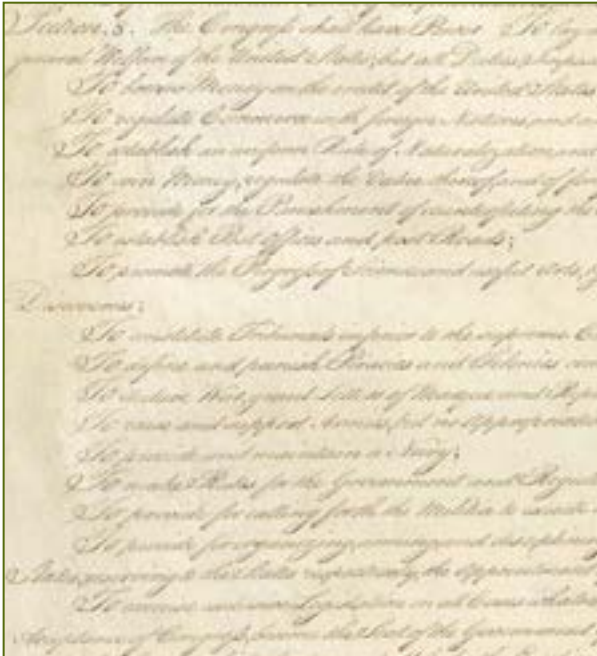 Section. 8. The Congress shall have Power To lay
general Welfare of the United States; but all Duties, Imposts
To borrow Money on the credit of the United States
To regulate Commerce with foreign Nations, and
To establish an uniform Rule of Naturalization, and
To coin Money, regulate the Value thereof, and of
To provide for the Punishment of counterfeiting the
To establish Post Offices and post Roads;
To promote the Progress of Science and useful Arts,
Discoveries;
To constitute Tribunals inferior to the supreme
To define and punish Piracies and Felonies
To declare War, grant Letters of Marque and
To raise and support Armies, but no Appropriation
To provide and maintain a Navy;
To make Rules for the Government and
To provide for calling forth the Militia to execute
To provide for organizing, arming, and disciplining
States, reserving to the States respectively, the Appointment
To exercise exclusive Legislation in all Cases
Acceptance of Congress, become the Seat of the Government